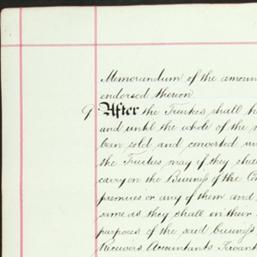 Memorandum of the amoun
endorsed thereon
9 After the Trustees shall h
and until the whole of the
been sold and converted in
the Trustees may if they sha
carry on the Business of the Co
premises or any of them and
same as they shall in their
purposes of the said business
Receivers Accountants Servant